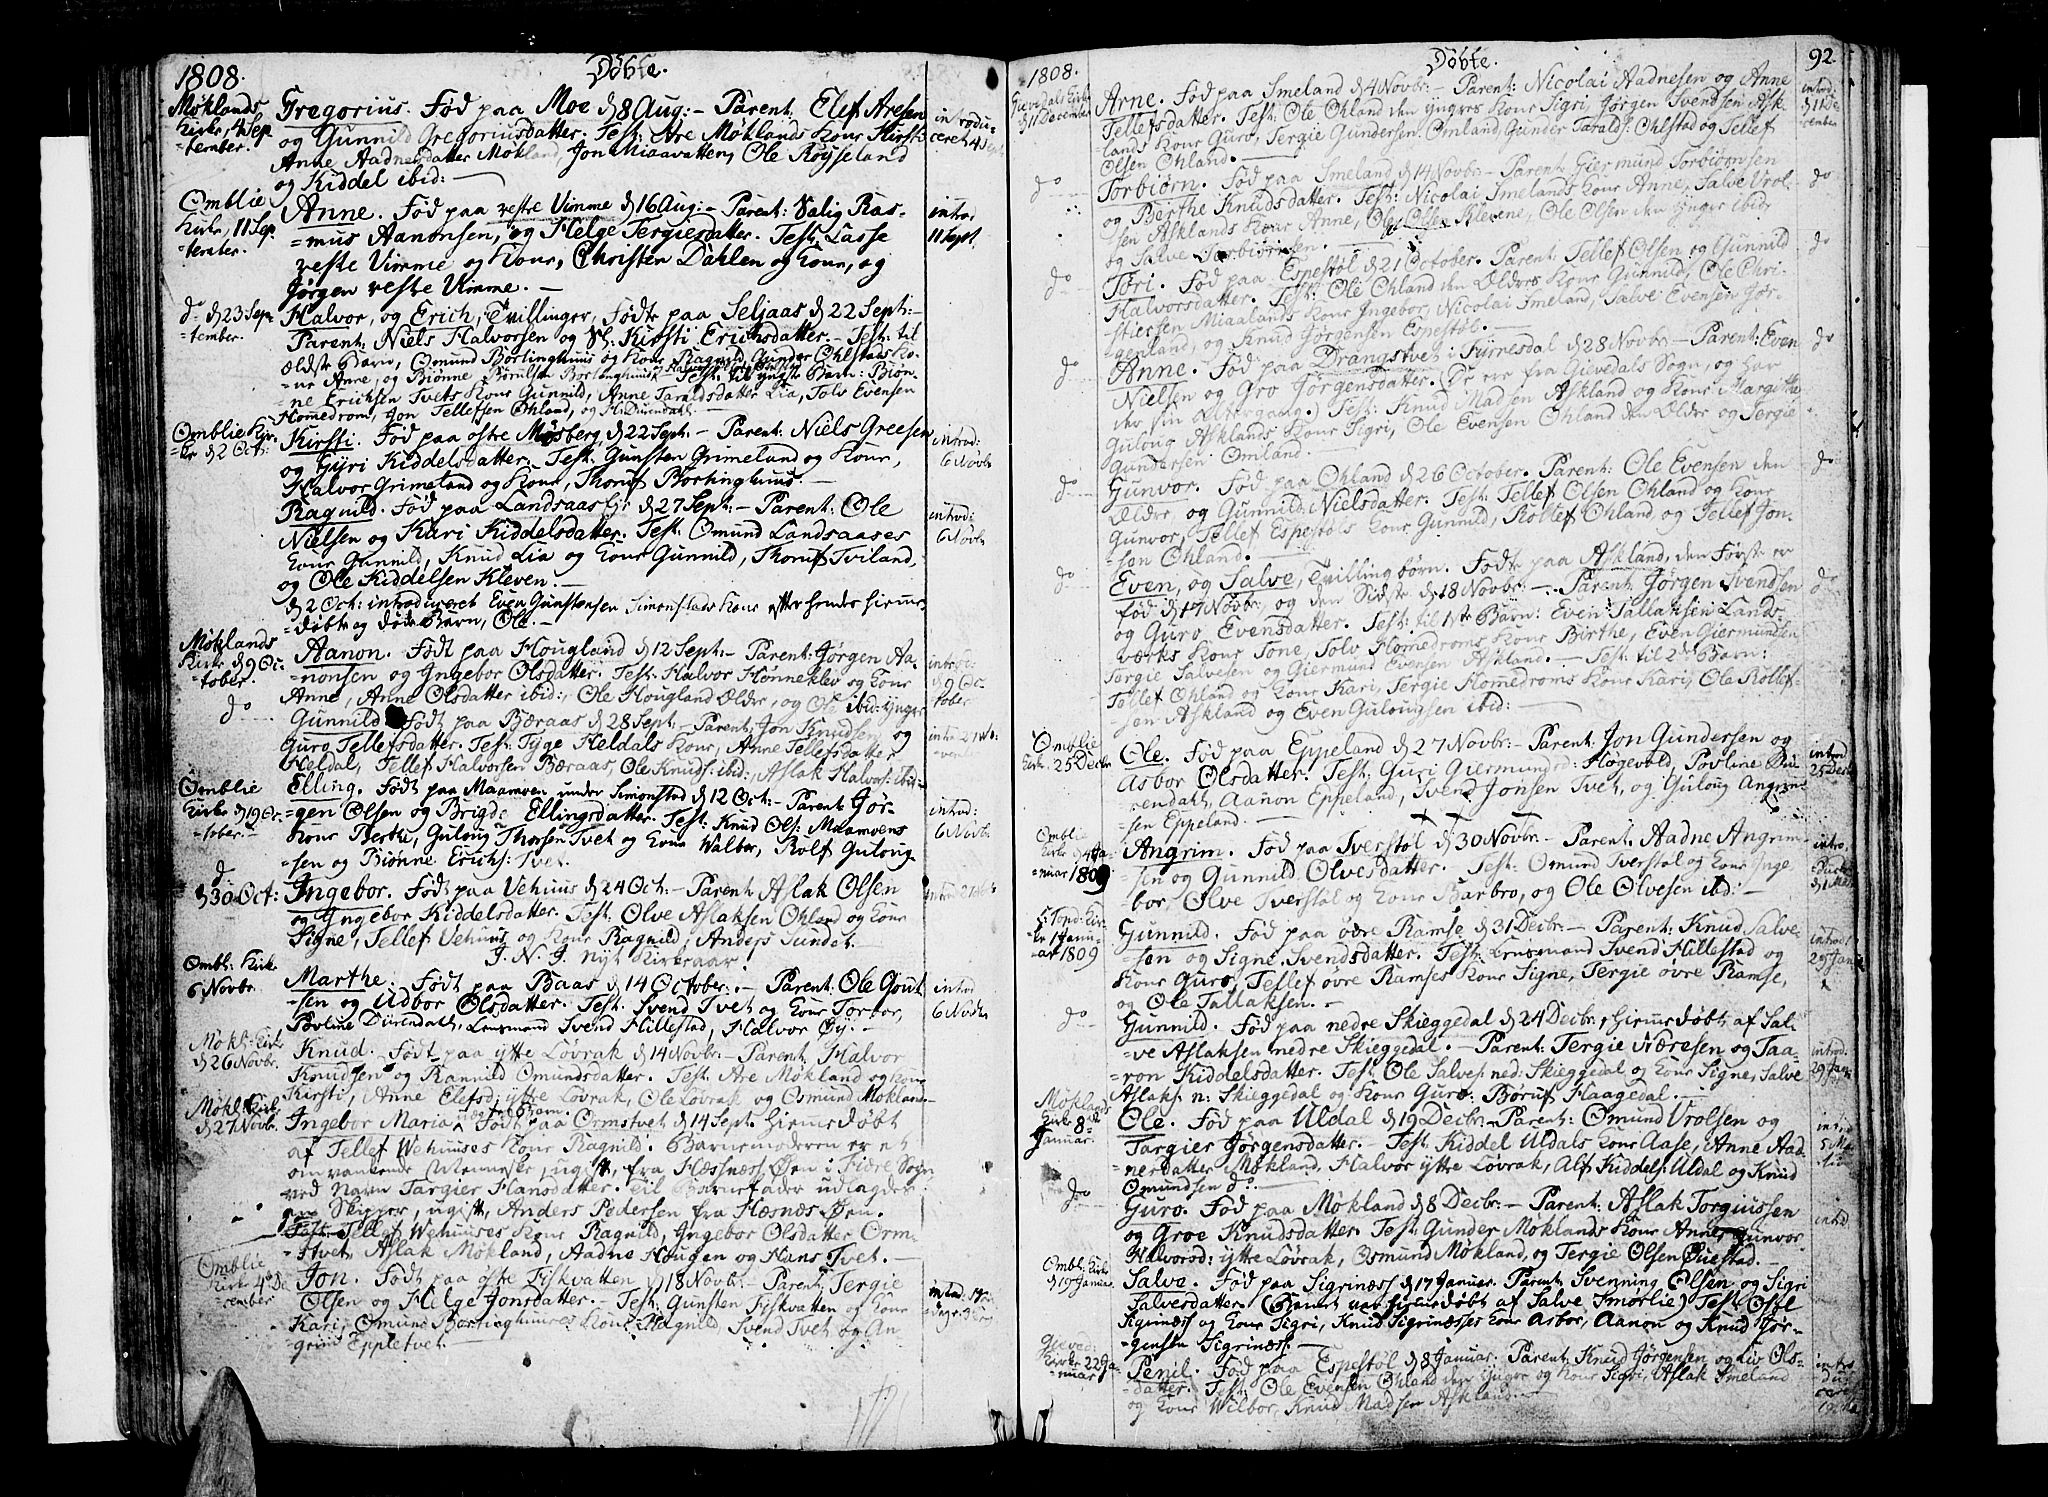 1808.
Döbte.
Møklands
Kirke, 4 Sep
=tember.
Gregorius. Fød paa Moe d 8 Aug:- Parent: Elef Aresen
og Gunnild Gregoriusdatter. Test: Are Møklands Kone Kirsti
Anne Aadnesdatter Møkland, Jon Miaavatten, Ole Røyseland
og Kiddel ibid:
introdu-
ceret 4 Sept
Omblie
Kirke, 11 Sep
=tember.
Anne. Fød paa vestre Vimme d 16 Aug:- Parent: Salig Ras-
=mus Aanonsen, og Helge Tergiesdatter. Test: Lasse
vestre Vimme og Kone, Christen Dahlen og Kone, og
Jørgen vestre Vimme. -
introd
11 Sept
do d 23 Sep
=tember.
Halvor, og Erich, Tvillinger, fødte paa Seljaas d 22 Sept:-
Parent: Niels Halvorsen og Sl: Kirsti Erichsdatter.- Test: til
ældste Barn, Omund Bortinghuus og Kone Ragnild, Gunder Ohlstads Ko-
=ne Anne, og Biønne Børulsen Bortinghuus Test: til yngste Barn: Biøn-
=ne Erichsen Tvets Kone Gunnild, Anne Taraldsdatter Lia, Tolv Evensen
Homedrom, Jon Tellefsen Ohland, og H: Dürendahl.
Omblie Kir-
=ke d 2 Oct:
Kirsti. Fød paa østre Mosberg d 22 Sept:- Parent: Niels Greesen
og Gyri Kiddelsdatter. Test: Gunsten Grimeland og Kone,
Halvor Grimeland og Kone, Thoruf Bortinghuus.
introd:
6 Novbr
Ragnild. Fød paa Landsaas d 27 Sept:- Parent: Ole
Nielsen og Kari Kiddelsdatter. Test: Omund Landsaases
Kone Gunnild, Knud Lia og Kone Gunnild, Thoruf Tviland,
og Ole Kiddelsen Kleven.
introd:
6 Novbr
d 2 Oct: introduceret Even Gunstensen Simonstads Kone efter hendes hiemme-
=døbte og døde Barn, Ole.
Møklands
Kirke d 9 Oc-
=tober.
Aanon. Født paa Hougland d 12 Sept:- Parent: Jørgen Aa-
=nonsen og Ingebor Olsdatter. Test: Halvor Hønneklev og Kone
Anne, Anne Olsdatter ibid:, Ole Hougland Ældre, og Ole ibid: Yngre
introd:
d 9 Oc-
tober
do
Gunnild. Født paa Bæraas d 28 Sept:- Parent: Jon Knudsen og
Guro Tellefsdatter. Test: Tyge Heldals Kone, Anne Tellefsdatter
Heldal, Tellef Halvorsen Bæraas, Ole Knuds: ibid:, Aslak Halvors: ibid:-
Omblie
Kirke d 19 Oc-
tober.
Elling. Født paa Maamoen under Simonstad d 12 Oct:- Parent: Jør-
=gen Olsen og Brigde Ellingsdatter. Test: Knud Ols: Maamoens
Kone Berthe, Guloug Thorsen Tvet og Kone Walbor, Rolf Guloug-
=sen og Biønne Erichs: Tvet.
introd:
6 Novbr
do
d 30 Oct:
Ingebor. Født paa Vehuus d 24 Oct:- Parent: Aslak Olsen
og Yngebor Kiddelsdatter. Test: Olve Aslaksen Ohland og Kone
Signe, Tellef Vehuus og Kone Ragnild, Anders Sundet.
J. N. J. nyt Kirkeaar
Ombl: Kirke
6 Novbr.
Marthe. Født paa Baas d 14 October.- Parent: Ole Gout-
=sen og Udbor Olsdatter. Test: Svend Tvet og Kone Torbor,
Povline Dürendahl, Lensmand Svend Hillestad, Halvor Øy.
introd
6 Novbr
Møkl: Kirke
d 26 Novbr.
Knud. Født paa ytte Løvrak d 14 Novbr:- Parent: Halvor
Knudsen og Rannild Omundsdatter. Test: Are Møkland og Kone
Kirsti, Anne Elefsd: ytte Løvrak, Ole Løvrak og Osmund Møkland.
Møkl: Kirke
d 27 Novbr.
Ingebor Maria, uægte Barn. Født paa Ormstvet d 14 Sept: hiemmedøbt
af Tellef Wehuuses Kone Ragnild. Barnemoderen er et
omvankende Menneske, ugift, fra Hæsnæss Øen i Fiære Sogn
ved Navn Targier Hansdatter. Til Barnefader udlagdes
en Skipper, ugift, Anders Pedersen fra Hæsnæs Øen.
Test: Tellef Wehuuses Kone Ragnild, Ingebor Olsdatter Orm-
=stvet, Aslak Møkland, Aadne Hougen og Hans Tvet.
Omblie
Kirke 4de De
cember
Jon. Født paa østre Fiskvatten d 18 Novbr:- Parent: Tergie
Olsen og Helge Jonsdatter.- Test: Gunsten Fiskvatten og Kone
Kari, Omund Bortinghuuses Kone Ragnild, Svend Tvet og An-
grim Eppletvet.
1808.
Döbte.
92.
Gievedals Kirke
d 11 December
Arne. Fød paa Smeland d 4 Novbr:- Parent: Nicolai Aadnesen og Anne
Tellefsdatter. Test: Ole Ohland den yngres Kone Sigri, Jørgen Svendsen Ask-
=lands Kone Guro, Tergie Gundersen Omland, Gunder Taralds: Ohlstad og Tellef
Olsen Ohland.
introd:
d 11 De-
cember
do
Torbiørn. Fød paa Smeland d 14 Novbr:- Parent: Giermund Torbiørnsen
og Berthe Knudsdatter. Test: Nicolai Smelands Kone Anne, Salve Vrol-
sen Asklands Kone Anne, Ole Olsen Klevene, Ole Olsen den yngre ibid:
og Salve Torbiørnsen.
do
do
Tori. Fød paa Espestøl d 21 October. Parent: Tellef Olsen og Gunnild
Halvorsdatter. Test: Ole Ohland den Ældres Kone Gunnild, Ole Chri-
stiersen Miaalands Kone Ingebor, Nicolai Smeland, Salve Evensen Jør-
genland, og Knud Jørgensen Espestøl.
do
do
Anne. Fød paa Drangstvet i Fürresdal d 28 Novbr:- Parent: Even
Nielsen og Gro Jørgensdatter. (De ere fra Gievedals Sogn, og har
der sin Altergang.) Test: Knud Madsen Askland og Kone Margithe,
Guloug Asklands Kone Sigri, Ole Evensen Ohland den Ældre og Tergie
Gundersen Omland.
do
do
Gunvor. Fød paa Ohland d 26 October. Parent: Ole Evensen den
Ældre og Gunnild Nielsdatter. Test: Tellef Olsen Ohland og Kone
Gunvor, Tellef Espestøls Kone Gunnild, Rollef Ohland, og Tellef Jon-
=sen Ohland.
do
do
Even, og Salve, Tvillingbørn. Fødte paa Askland, den Første er
fød d 17 Novbr:, og den Sidste d 18 Novbr:-. Parent: Jørgen Svendsen
og Guro Evensdatter. Test: til 1ste Barn: Even Tallaksen Lands-
værks Kone Tone, Tolv Homedroms Kone Birthe, Even Giermundsen,
Tergie Salvesen og Giermund Evensen Askland.- Test: til 2det Barn:
Tollef Ohland og Kone Kari, Tergie Homedroms Kone Kari, Ole Rollef-
=sen Askland og Even Gulougsen ibid:-
do
Omblie
Kirke. 25 Decbr
Ole. Fød paa Eppeland d 27 Novbr:- Parent: Jon Gundersen og
Asbor Olsdatter. Test: Guri Giermundsd: Høgevold, Povline Dü-
rendahl, Aanon Eppeland, Svend Jonsen Tvet, og Guloug Angrim-
sen Eppeland.
introd
25 Decbr
Omblie
Kirke d 4 Ja-
=nuar 1809
Angrim. Fød paa Sverstøl d 30 Novbr:- Parent: Aadne Angrim-
=sen og Gunnild Olvesdatter. Test: Omund Sverstøl og Kone Inge-
bor, Olve Sverstøl og Kone Barbro, og Ole Olvesen ibd:-
intro-
ducert
d 1 Mai
Kir-
ke 1 Janu-
=ar 1809
Gunnild. Fød paa øvre Ramse d 31 Decbr:- Parent: Knud Salve-
=sen og Signe Svendsdatter. Test: Lensmand Svend Hillestad og
Kone Guro, Tellef øvre Ramses Kone Signe, Tergie øvre Ramse,
og Ole Tallaksen.-
introd
29 Janu
do
Gunnild. Fød paa nedre Skieggedal d 24 Decbr:, hiemmedøbt af Sal-
=ve Aslaksen nedre Skieggedal.- Parent: Tergie Næresen og Taa-
=ron Kiddelsdatter. Test: Ole Salves: ned: Skieggedal og Kone Signe, Salve
Aslaks: n: Skieggedal og Kone Guro. Børuf Haagedal.
introd.
29 Jan
Møklands
Kirke 8de
Januar.
Ole. Fød paa Uldal d 19 Decbr:- Parent: Omund Vrolsen og
Targier Jørgensdatter.- Test: Kiddel Uldals Kone Aase, Anne Aad-
=nesdatter Møkland, Halvor ytte Løvrak, Alf Kiddels: Uldal og Knud
Omundsen do.
do
Guro. Fød paa Møkland d 8 Decbr:- Parent: Aslak Torgiussen
og Groe Knudsdatter. Test: Gunder Møklands Kone Anne, Gunvor
Halvorsd: ytte Løvrak, Osmund Møkland, og Tergie Olsen Øiestad.-
introd.
Ombl: Kirke
d 19 Januar.
Salve. Fød paa Sigrinæss d 17 Januar. Parent: Svenning Olsen og Sigri
Salvesdatter. (Barnet var hiemmedøbt af Salve Smørlie) Test: Ole
Sigrinæss og Kone Sigri, Knud Sigrinæsses Kone Asbor, Aanon og Knud Jør-
gensen Sigrinæss.
Gieved:
Kirke 22 Ja-
=nuar
Penil. Fød paa Espestøl d 8 Januar: Parent: Knud Jørgensen og Liv Ols-
=datter. Test: Ole Evensen Ohland den yngre og Kone Sigri, Aslak Smeland
og Kone Wilbor, Knud Madsen Askland.